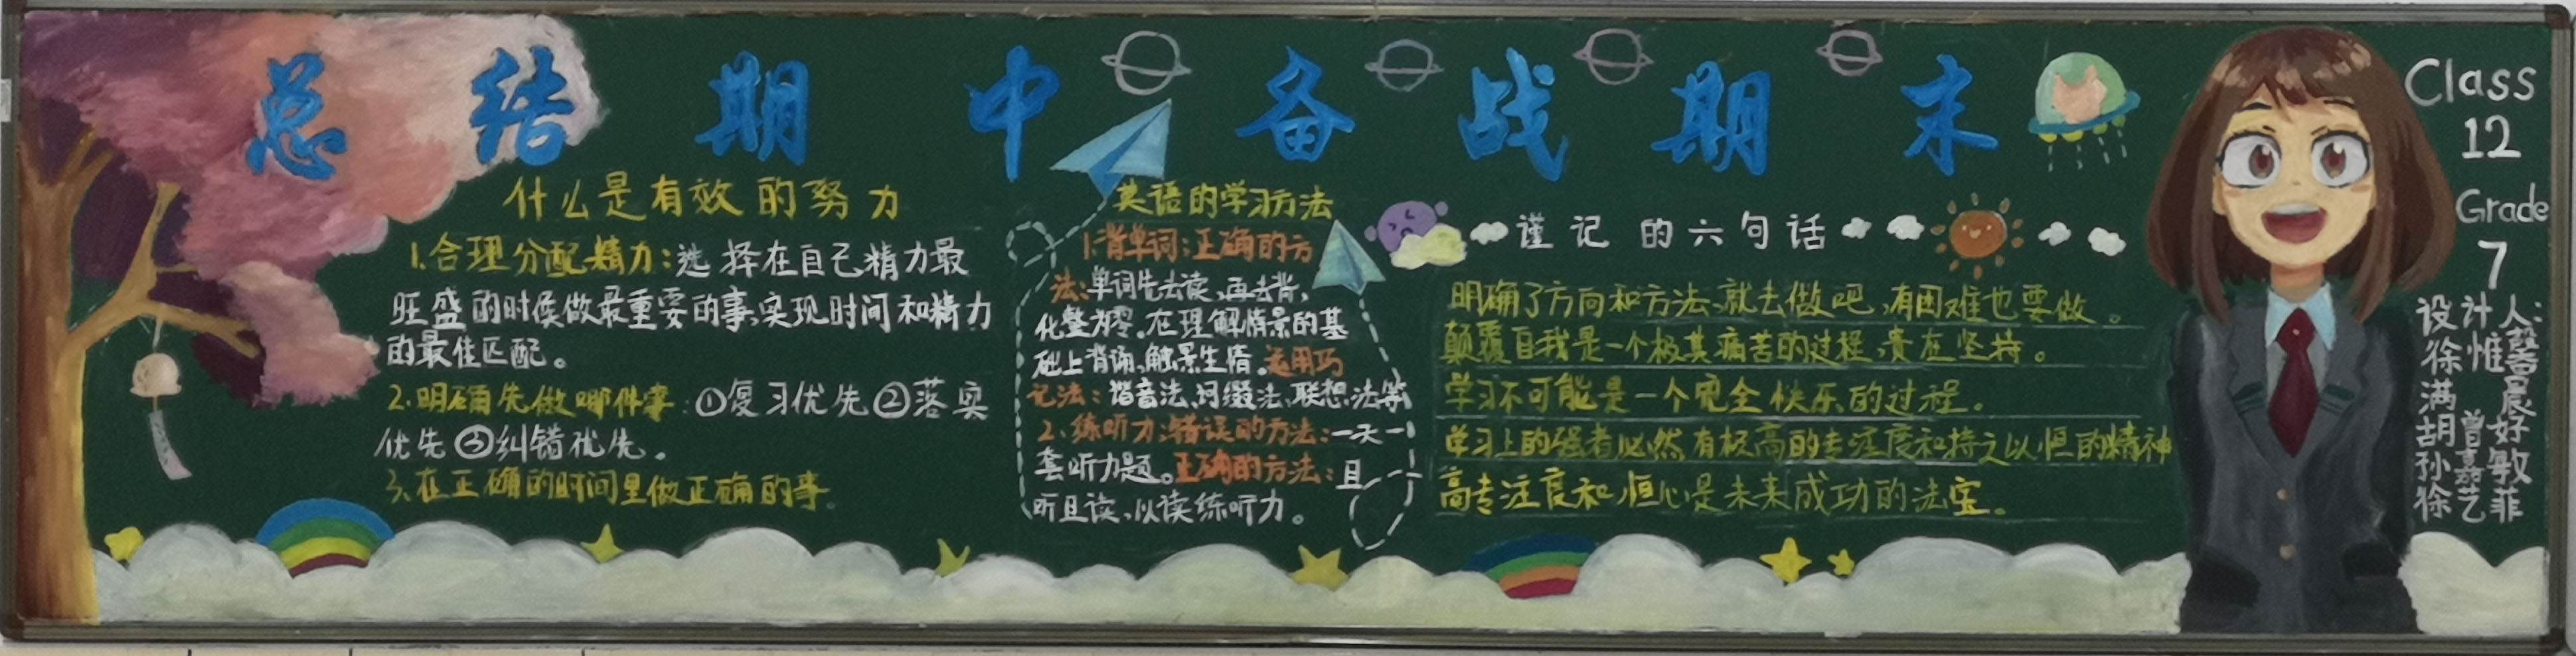 总结期中备战期末
什么是有效的努力
1.合理分配精力:选择在自己精力最
旺盛的时候做最重要的事,实现时间和精力
的最佳匹配。
2.明确先做哪件事:①复习优先②落实
优先③纠错优先。
3.在正确的时间里做正确的事。
英语的学习方法
1.背单词:正确的方
法:单词先去读,再去背,
化整为零。在理解情景的基
础上背诵,触景生情。运用巧
记法:谐音法、词缀法、联想法等
2.练听力:错误的方法:一天一
套听力题。正确的方法:且
听且读,以读练听力。
谨记的六句话
明确了方向和方法,就去做吧,有困难也要做。
颠覆自我是一个极其痛苦的过程,贵在坚持。
学习不可能是一个完全快乐的过程。
学习上的强者必然有极高的专注度和持之以恒的精神
高专注度和恒心是未来成功的法宝。
Class
12
Grade
7
设计人:
徐惟馨
满晨
胡曾好
孙嘉敏
徐艺菲